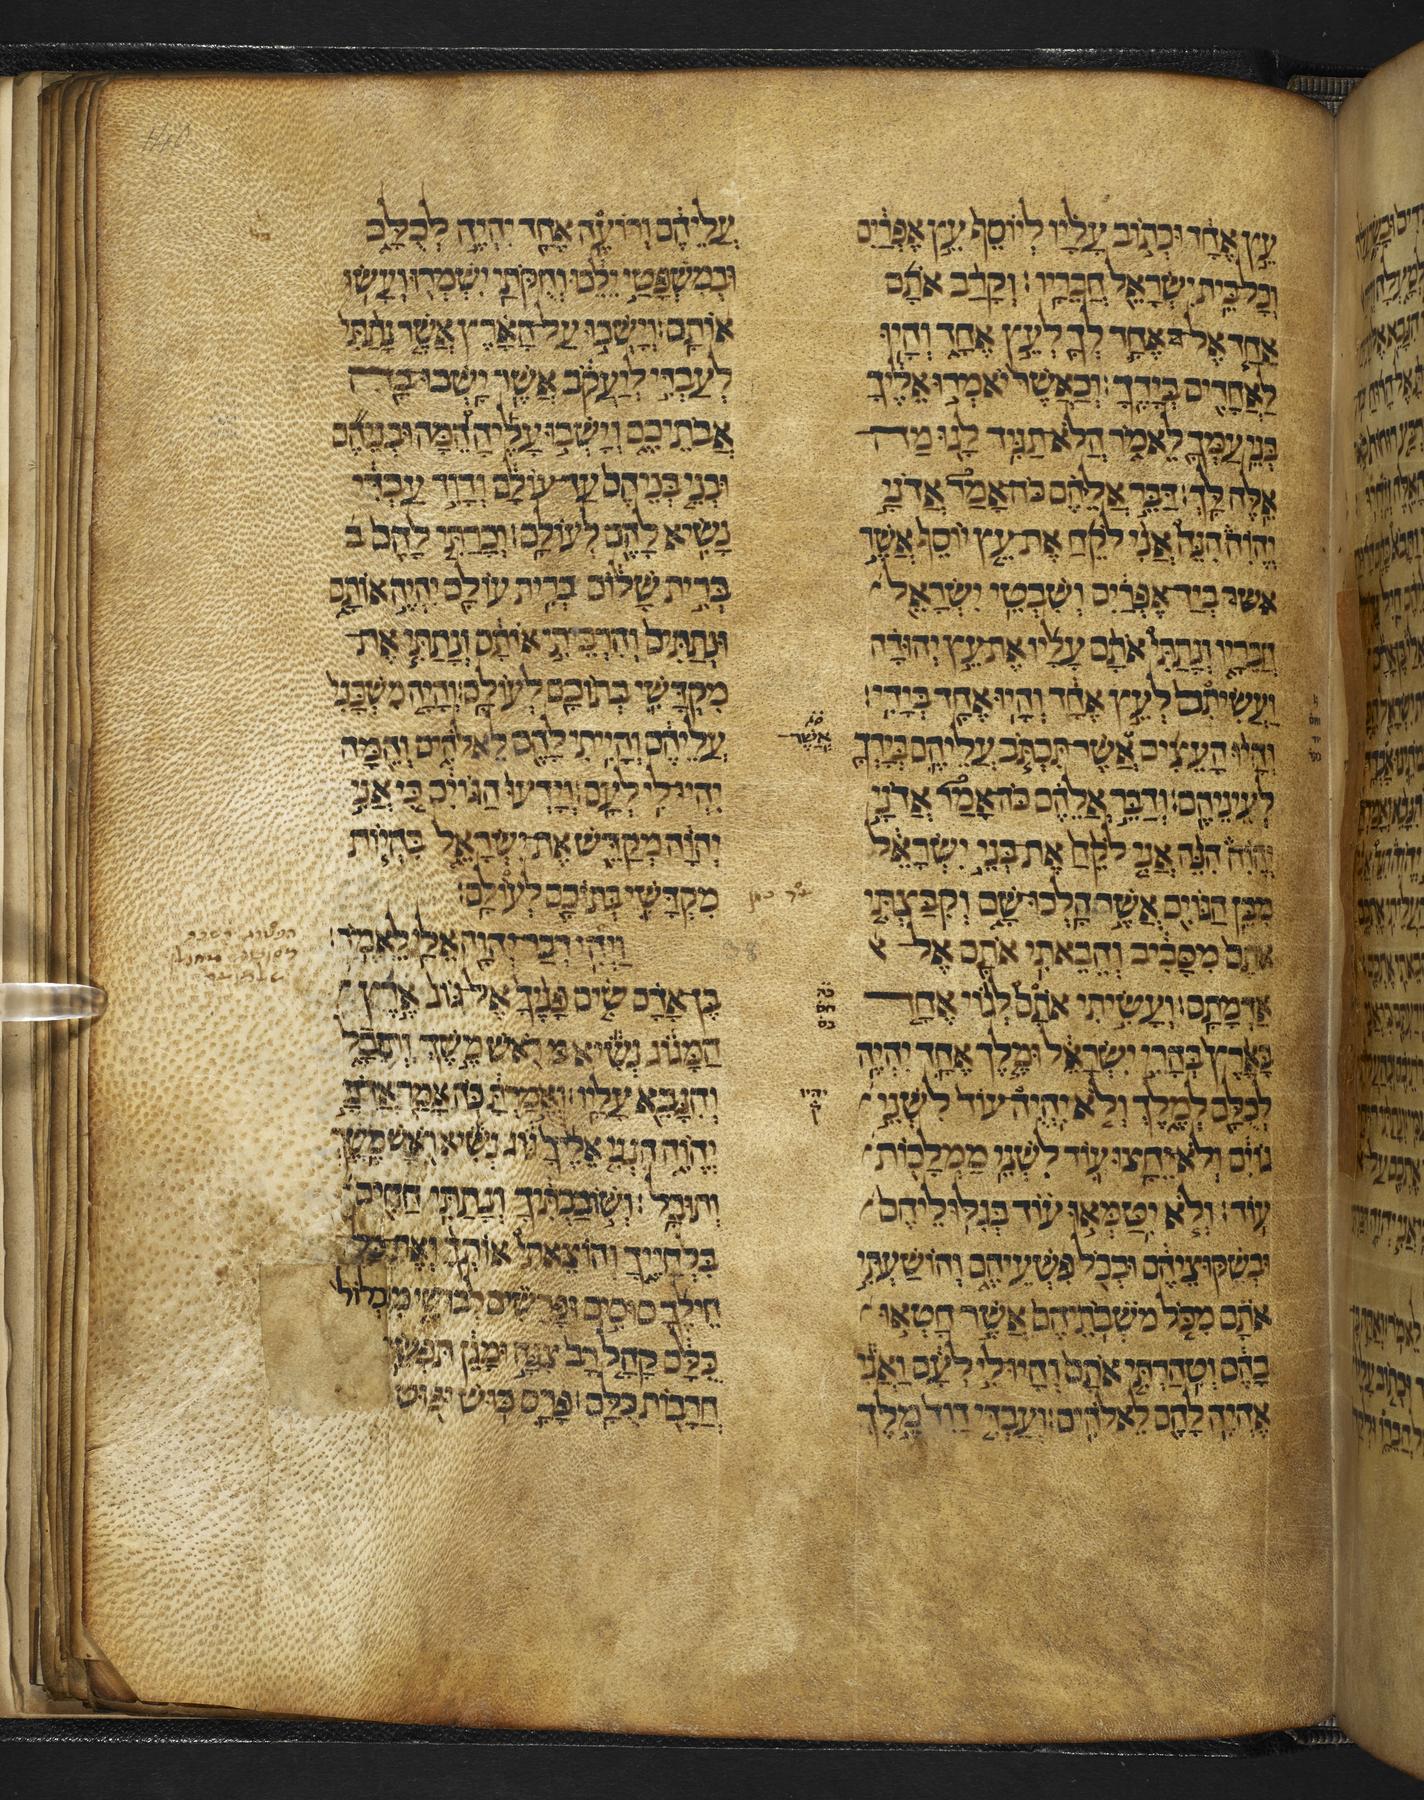 עֵץ אֶחָד וּכְתוֹב עָלָיו לְיוֹסֵף עֵץ אֶפְרַיִם
וְכָל בֵּית יִשְׂרָאֵל חֲבֵרָיו׃ וְקָרַב אֹתָם
אֶחָד אֶל אֶחָד לְךָ לְעֵץ אֶחָד וְהָיוּ
לַאֲחָדִים בְּיָדֶךָ׃ וְכַאֲשֶׁר יֹאמְרוּ אֵלֶיךָ
בְּנֵי עַמְּךָ לֵאמֹר הֲלֹא תַגִּיד לָנוּ מָה
אֵלֶּה לָּךְ׃ דַּבֵּר אֲלֵהֶם כֹּה אָמַר אֲדֹנָי
יֱהוִֹה הִנֵּה אֲנִי לֹקֵחַ אֶת עֵץ יוֹסֵף אֲשֶׁר
אשר בְּיַד אֶפְרַיִם וְשִׁבְטֵי יִשְׂרָאֵל
חֲבֵרָיו וְנָתַתִּי אֹתָם עָלָיו אֶת עֵץ יְהוּדָה
וַעֲשִׂיתִם לְעֵץ אֶחָד וְהָיוּ אֶחָד בְּיָדִי׃
וְהָיוּ הָעֵצִים אֲשֶׁר תִּכְתֹּב עֲלֵיהֶם בְּיָדְךָ
לְעֵינֵיהֶם׃ וְדַבֵּר אֲלֵהֶם כֹּה אָמַר אֲדֹנָי
יֱהוִֹה הִנֵּה אֲנִי לֹקֵחַ אֶת בְּנֵי יִשְׂרָאֵל
מִבֵּין הַגּוֹיִם אֲשֶׁר הָלְכוּ שָׁם וְקִבַּצְתִּי
אֹתָם מִסָּבִיב וְהֵבֵאתִי אֹתָם אֶל א
אַדְמָתָם׃ וְעָשִׂיתִי אֹתָם לְגוֹי אֶחָד
בָּאָרֶץ בְּהָרֵי יִשְׂרָאֵל וּמֶלֶךְ אֶחָד יִהְיֶה
לְכֻלָּם לְמֶלֶךְ וְלֹא יִהְיֶה עוֹד לִשְׁנֵי
גוֹיִם וְלֹא יֵחָצוּ עוֹד לִשְׁנֵי מַמְלָכוֹת
עוֹד׃ וְלֹא יִטַּמְּאוּ עוֹד בְּגִלּוּלֵיהֶם
וּבְשִׁקּוּצֵיהֶם וּבְכֹל פִּשְׁעֵיהֶם וְהוֹשַׁעְתִּי
אֹתָם מִכֹּל מֹשְׁבֹתֵיהֶם אֲשֶׁר חָטְאוּ
בָהֶם וְטִהַרְתִּי אֹתָם וְהָיוּ לִי לְעָם וַאֲנִי
אֶהְיֶה לָהֶם לֵאלֹהִים׃ וְעַבְדִּי דָוִד מֶלֶךְ
אֲשֶׁר
יהיו
ק
עֲלֵיהֶם וְרוֹעֶה אֶחָד יִהְיֶה לְכֻלָּם
וּבְמִשְׁפָּטַי יֵלֵכוּ וְחֻקֹּתַי יִשְׁמְרוּ וְעָשׂוּ
אוֹתָם׃ וְיָשְׁבוּ עַל הָאָרֶץ אֲשֶׁר נָתַתִּי
לְעַבְדִּי לְיַעֲקֹב אֲשֶׁר יָשְׁבוּ בָהּ
אֲבֹתֵיכֶם וְיָשְׁבוּ עָלֶיהָ הֵמָּה וּבְנֵיהֶם
וּבְנֵי בְנֵיהֶם עַד עוֹלָם וְדָוִד עַבְדִּי
נָשִׂיא לָהֶם לְעוֹלָם׃ וְכָרַתִּי לָהֶם ב
בְּרִית שָׁלוֹם בְּרִית עוֹלָם יִהְיֶה אוֹתָם
וּנְתַתִּים וְהִרְבֵּיתִי אוֹתָם וְנָתַתִּי אֶת
מִקְדָּשִׁי בְּתוֹכָם לְעוֹלָם׃ וְהָיָה מִשְׁכָּנִי
עֲלֵיהֶם וְהָיִיתִי לָהֶם לֵאלֹהִים וְהֵמָּה
יִהְיוּ לִי לְעָם׃ וְיָדְעוּ הַגּוֹיִם כִּי אֲנִי
יְהוָֹה מְקַדֵּשׁ אֶת יִשְׂרָאֵל בִּהְיוֹת
מִקְדָּשִׁי בְּתוֹכָם לְעוֹלָם׃
וַיְהִי דְבַר יְהוָה אֵלַי לֵאמֹר׃
בֶּן אָדָם שִׂים פָּנֶיךָ אֶל גּוֹג אֶרֶץ
הַמָּגוֹג נְשִׂיא רֹאשׁ מֶשֶׁךְ וְתֻבָל
וְהִנָּבֵא עָלָיו׃ וְאָמַרְתָּ כֹּה אָמַר אֲדֹנָי
יֱהוִֹה הִנְנִי אֵלֶיךָ גּוֹג נְשִׂיא רֹאשׁ מֶשֶׁךְ
וְתוּבָל׃ וְשׁוֹבַבְתִּיךָ וְנָתַתִּי חַחִים
בִּלְחָיֶיךָ וְהוֹצֵאתִי אוֹתְךָ וְאֶת כָּל
חֵילֶךָ סוּסִים וּפָרָשִׁים לְבוּשֵׁי מִכְלוֹל
כֻּלָּם קָהָל רָב צִנָּה וּמָגֵן תֹּפְשֵׂי
חֲרָבוֹת כֻּלָּם׃ פָּרַס כּוּשׁ וּפוּט
38